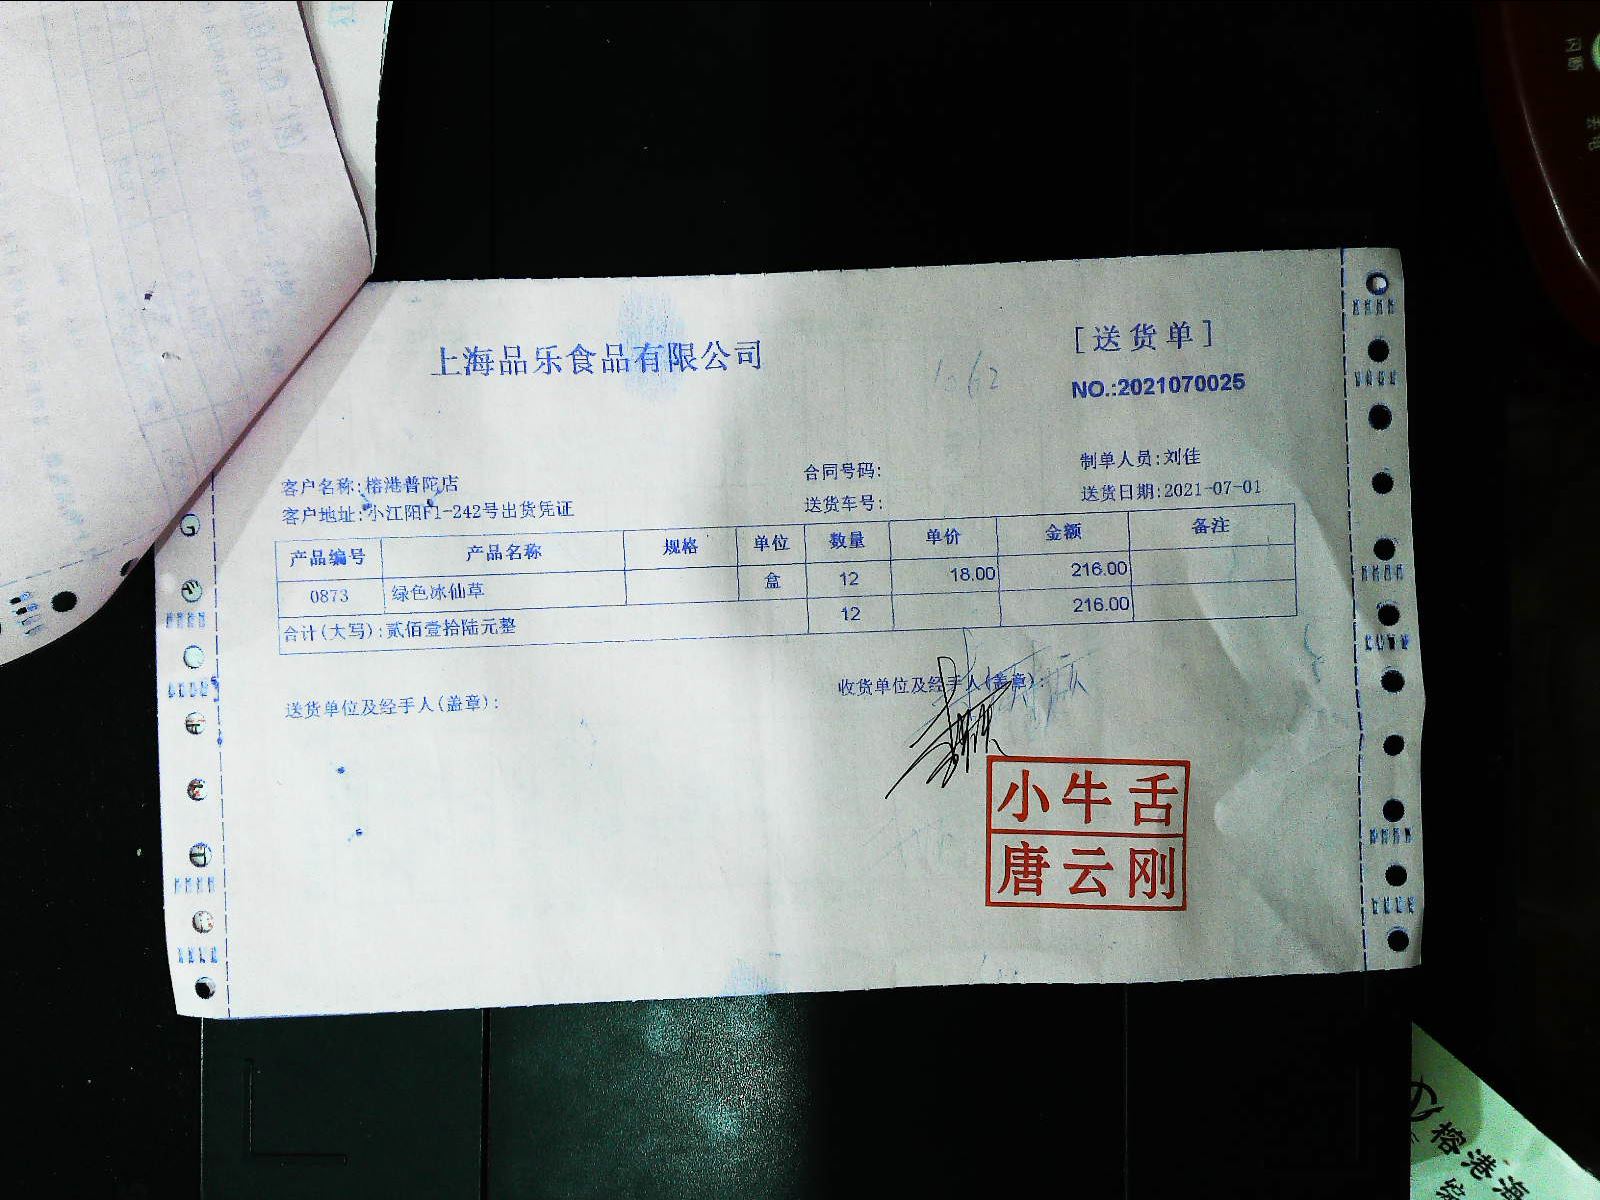 上海品乐食品有限公司
[送货单]
NO.:2021070025
1062
客户名称:榕港普陀店
合同号码:
制单人员:刘佳
客户地址:小江阳F1-242号出货凭证
送货车号:
送货日期:2021-07-01
产品编号 产品名称 规格 单位 数量 单价 金额 备注
0873 绿色冰仙草 盒 12 18.00 216.00
合计(大写):贰佰壹拾陆元整 12 216.00
送货单位及经手人(盖章):
收货单位及经手人(盖章):
小牛舌
唐云刚
榕港海